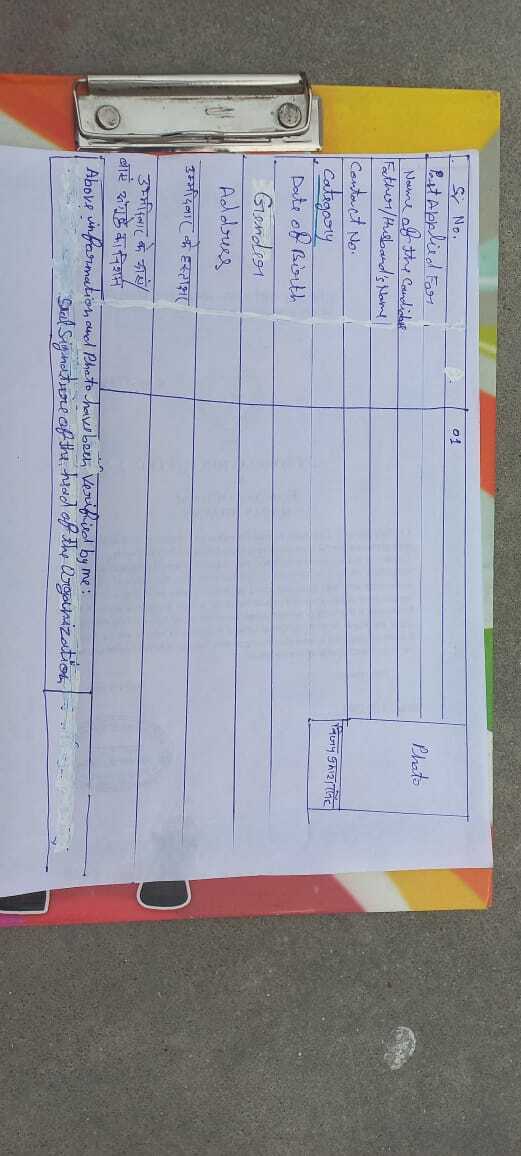 Sr No. 01
Post Applied For
Name of the Candidate
Father/Husband's Name
Photo
Contact No.
Category
Date of Birth
Gender
Address
उम्मीदवार के हस्ताक्षर
उम्मीदवार के बायें/
दायें अंगूठे का निशान
Above information and Photo have been verified by me:
Seal Signature of the head of the Organization